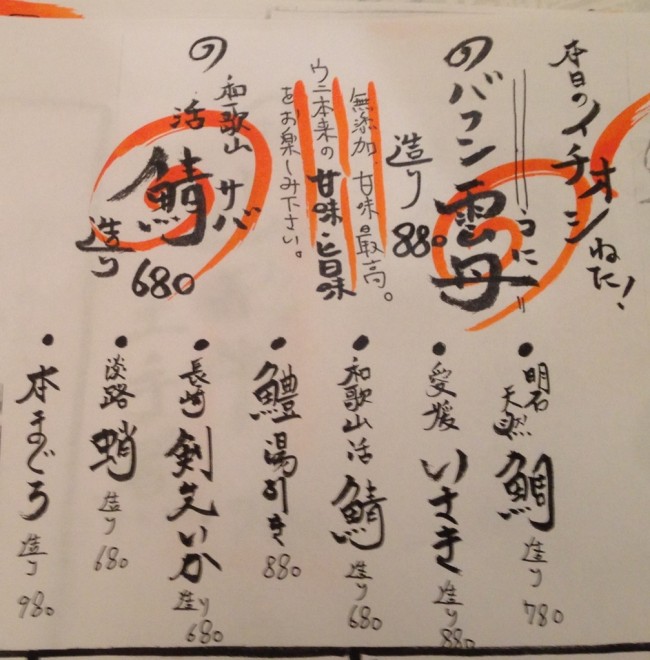 本日のイチオシねた!
の バフン雲丹
うに
造り 880
無添加、甘味最高。
ウニ本来の甘味・旨味
をお楽しみ下さい。
の 和歌山
活 鯖
サバ
造り 680
• 明石
天然 鯛 造り 780
• 愛媛 いさき 造り 880
• 和歌山活 鯖 造り 680
• 鱧湯引き 880
• 長崎 剣先いか 造り 680
• 淡路 蛸 造り 680
• 本まぐろ 造り 980